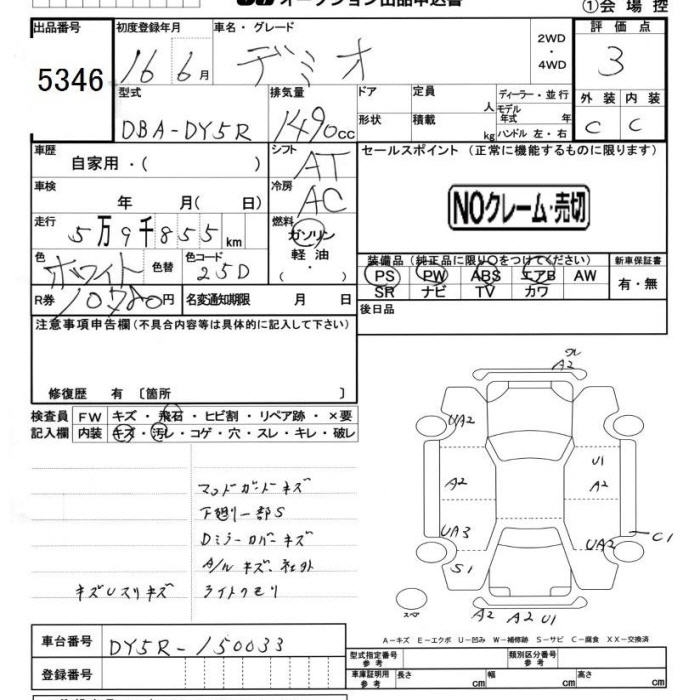 オークション出品申込書
①会場控
出品番号
5346
初度登録年月
16 6月
車名・グレード
デミオ
2WD
・
4WD
評価点
3
外装 内装
C C
型式
DBA-DY5R
排気量
1490cc
ドア
定員
人
形状
積載
kg
ディーラー・並行
モデル年式 年
ハンドル 左・右
車歴
自家用・( )
シフト
AT
セールスポイント (正常に機能するものに限ります)
NOクレーム・売切
車検
年 月( 日)
冷房
AC
走行
5万9千855km
燃料
ガソリン
軽油
( ・ )
色
ホワイト
色替
色コード
25D
装備品(純正品に限り○をつけてください)
PS PW ABS エアB AW
SR ナビ TV カワ
新車保証書
有・無
R券 10780円
名変通知期限 月 日
後日品
注意事項申告欄(不具合内容等は具体的に記入して下さい)
修復歴 有 〔箇所 〕
検査員
記入欄
FW キズ・飛石・ヒビ割・リペア跡・×要
内装 キズ・汚レ・コゲ・穴・スレ・キレ・破レ
マッドガードキズ
下廻一部S
Dミラーカバーキズ
A/Wキズ、社外
キズUスリキズ
ライトクモリ
A2
UA2
U1
A2
A2
UA3
UA2
C1
S1
スペア
A2 A2 U1
A-キズ E-エクボ U-凹み W-補修跡 S-サビ C-腐食 XX-交換済
車台番号
DY5R-150033
登録番号
型式指定番号
参考
類別区分番号
参考
車庫証明用
参考
長さ cm
幅 cm
高さ cm